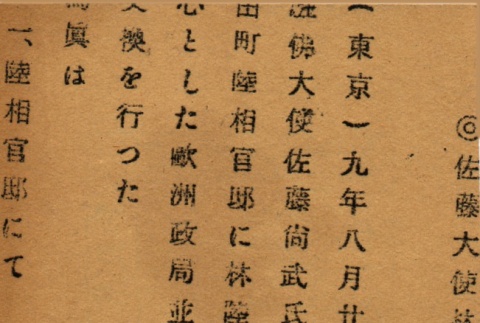 ◎佐藤大使
(東京)九年八月廿
佛大使佐藤尙武氏
田町陸相官邸に林陸
心とした歐洲政局並
換を行つた
眞は
一、陸相官邸にて